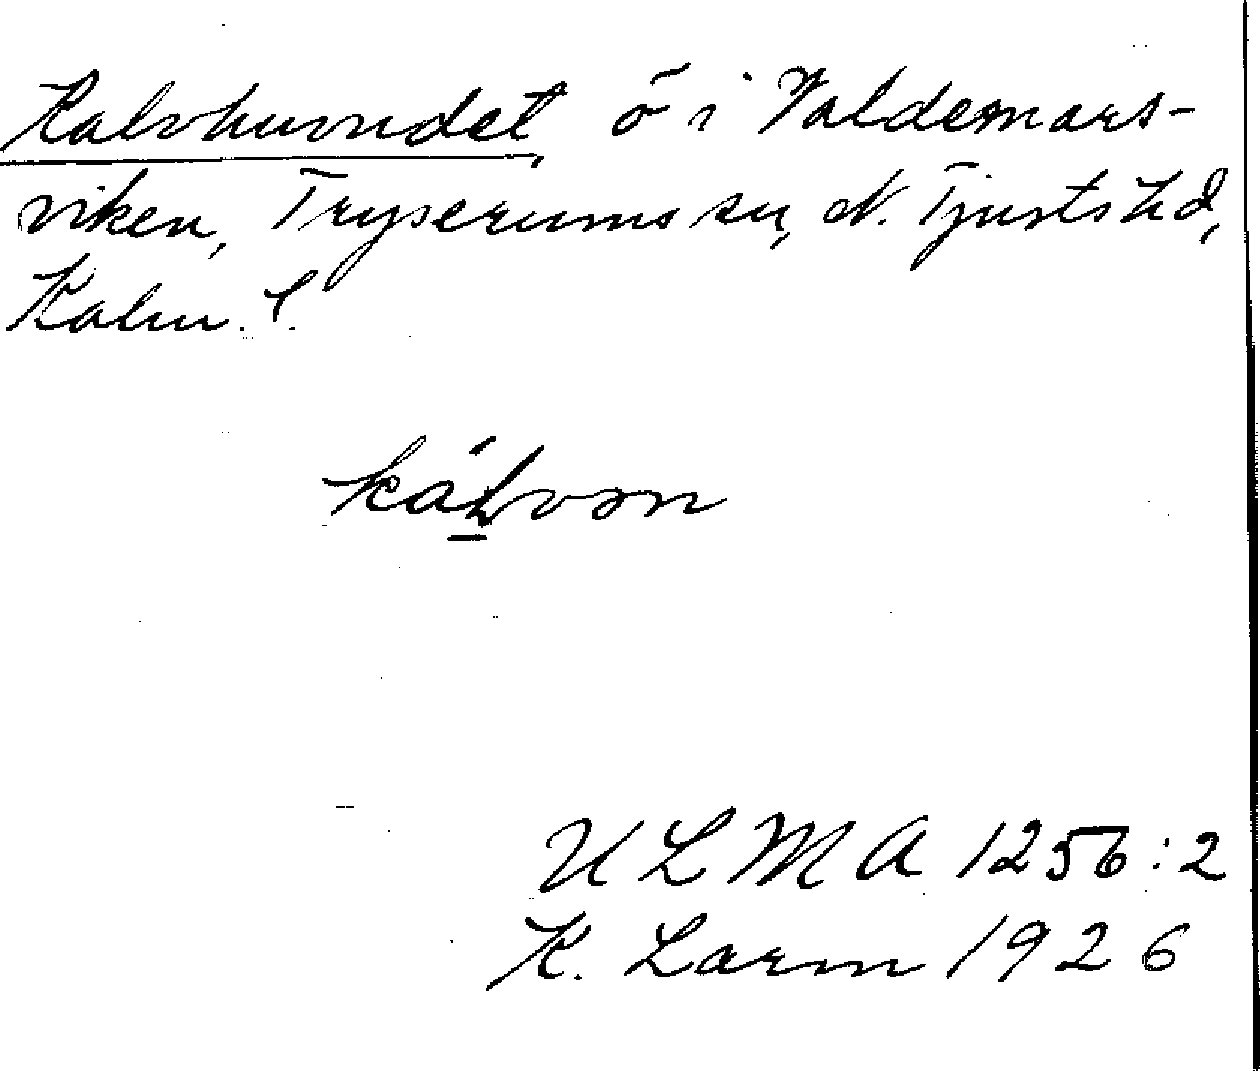 Kalvhuvudet, ö i Valdemars-
viken, Tryserums sn, N. Tjusts hd,
Kalm. l.
kálvən
ULMA 1256:2
K. Larm 1926